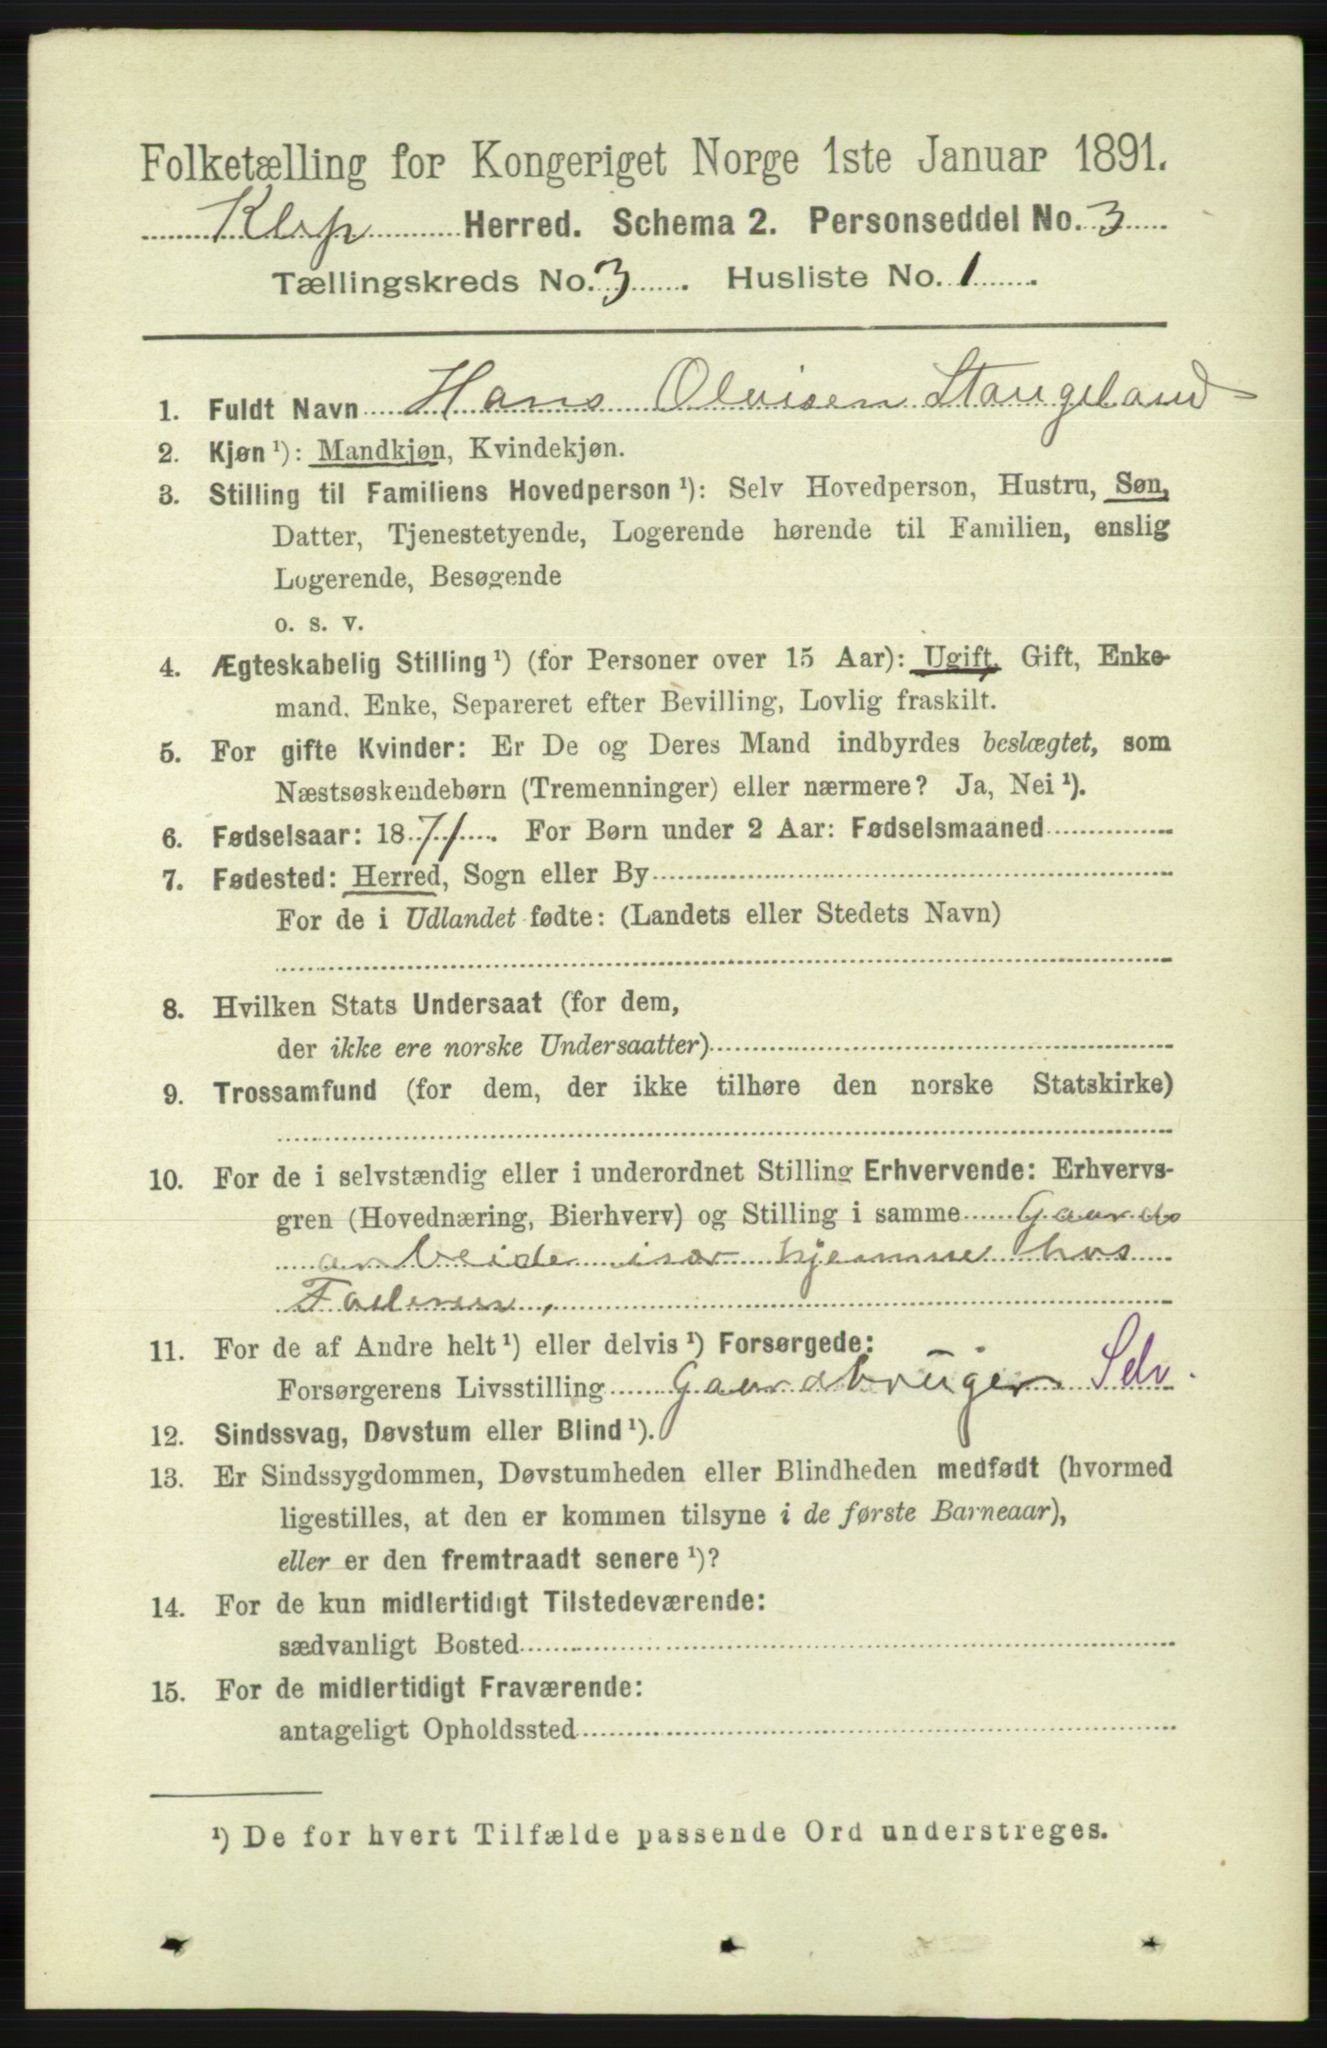 Folketælling for Kongeriget Norge 1ste Januar 1891.
Klep Herred. Schema 2. Personseddel No. 3
Tællingskreds No. 3. Husliste No. 1.
1. Fuldt Navn Hans Olvisen Stangeland
2. Kjøn ¹): Mandkjøn, Kvindekjøn.
3. Stilling til Familiens Hovedperson ¹): Selv Hovedperson, Hustru, Søn,
Datter, Tjenestetyende, Logerende hørende til Familien, enslig
Logerende, Besøgende
o. s. v.
4. Ægteskabelig Stilling ¹) (for Personer over 15 Aar): Ugift, Gift, Enke-
mand, Enke, Separeret efter Bevilling, Lovlig fraskilt.
5. For gifte Kvinder: Er De og Deres Mand indbyrdes beslægtet, som
Næstsøskendebørn (Tremenninger) eller nærmere? Ja, Nei ¹).
6. Fødselsaar: 1871. For Børn under 2 Aar: Fødselsmaaned
7. Fødested: Herred, Sogn eller By
For de i Udlandet fødte: (Landets eller Stedets Navn)
8. Hvilken Stats Undersaat (for dem,
der ikke ere norske Undersaatter)
9. Trossamfund (for dem, der ikke tilhøre den norske Statskirke)
10. For de i selvstændig eller i underordnet Stilling Erhvervende: Erhvervs-
gren (Hovednæring, Bierhverv) og Stilling i samme Gaards
arbeide hjemme hos
Faderen,
11. For de af Andre helt ¹) eller delvis ¹) Forsørgede:
Forsørgerens Livsstilling Gaardbruger Selv.
12. Sindssvag, Døvstum eller Blind ¹).
13. Er Sindssygdommen, Døvstumheden eller Blindheden medfødt (hvormed
ligestilles, at den er kommen tilsyne i de første Barneaar),
eller er den fremtraadt senere ¹)?
14. For de kun midlertidigt Tilstedeværende:
sædvanligt Bosted
15. For de midlertidigt Fraværende:
antageligt Opholdssted
¹) De for hvert Tilfælde passende Ord understreges.